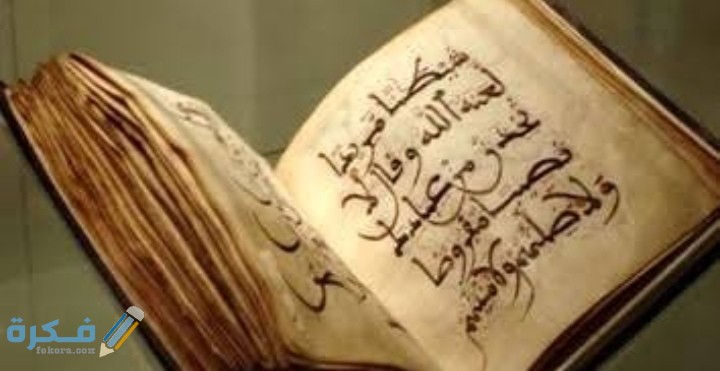 شيطنا مريدا
لعنه الله وقال لا
تخذن من عبادك
نصيبا مفروضا
ولاضلنهم ولامنينهم
فكرة